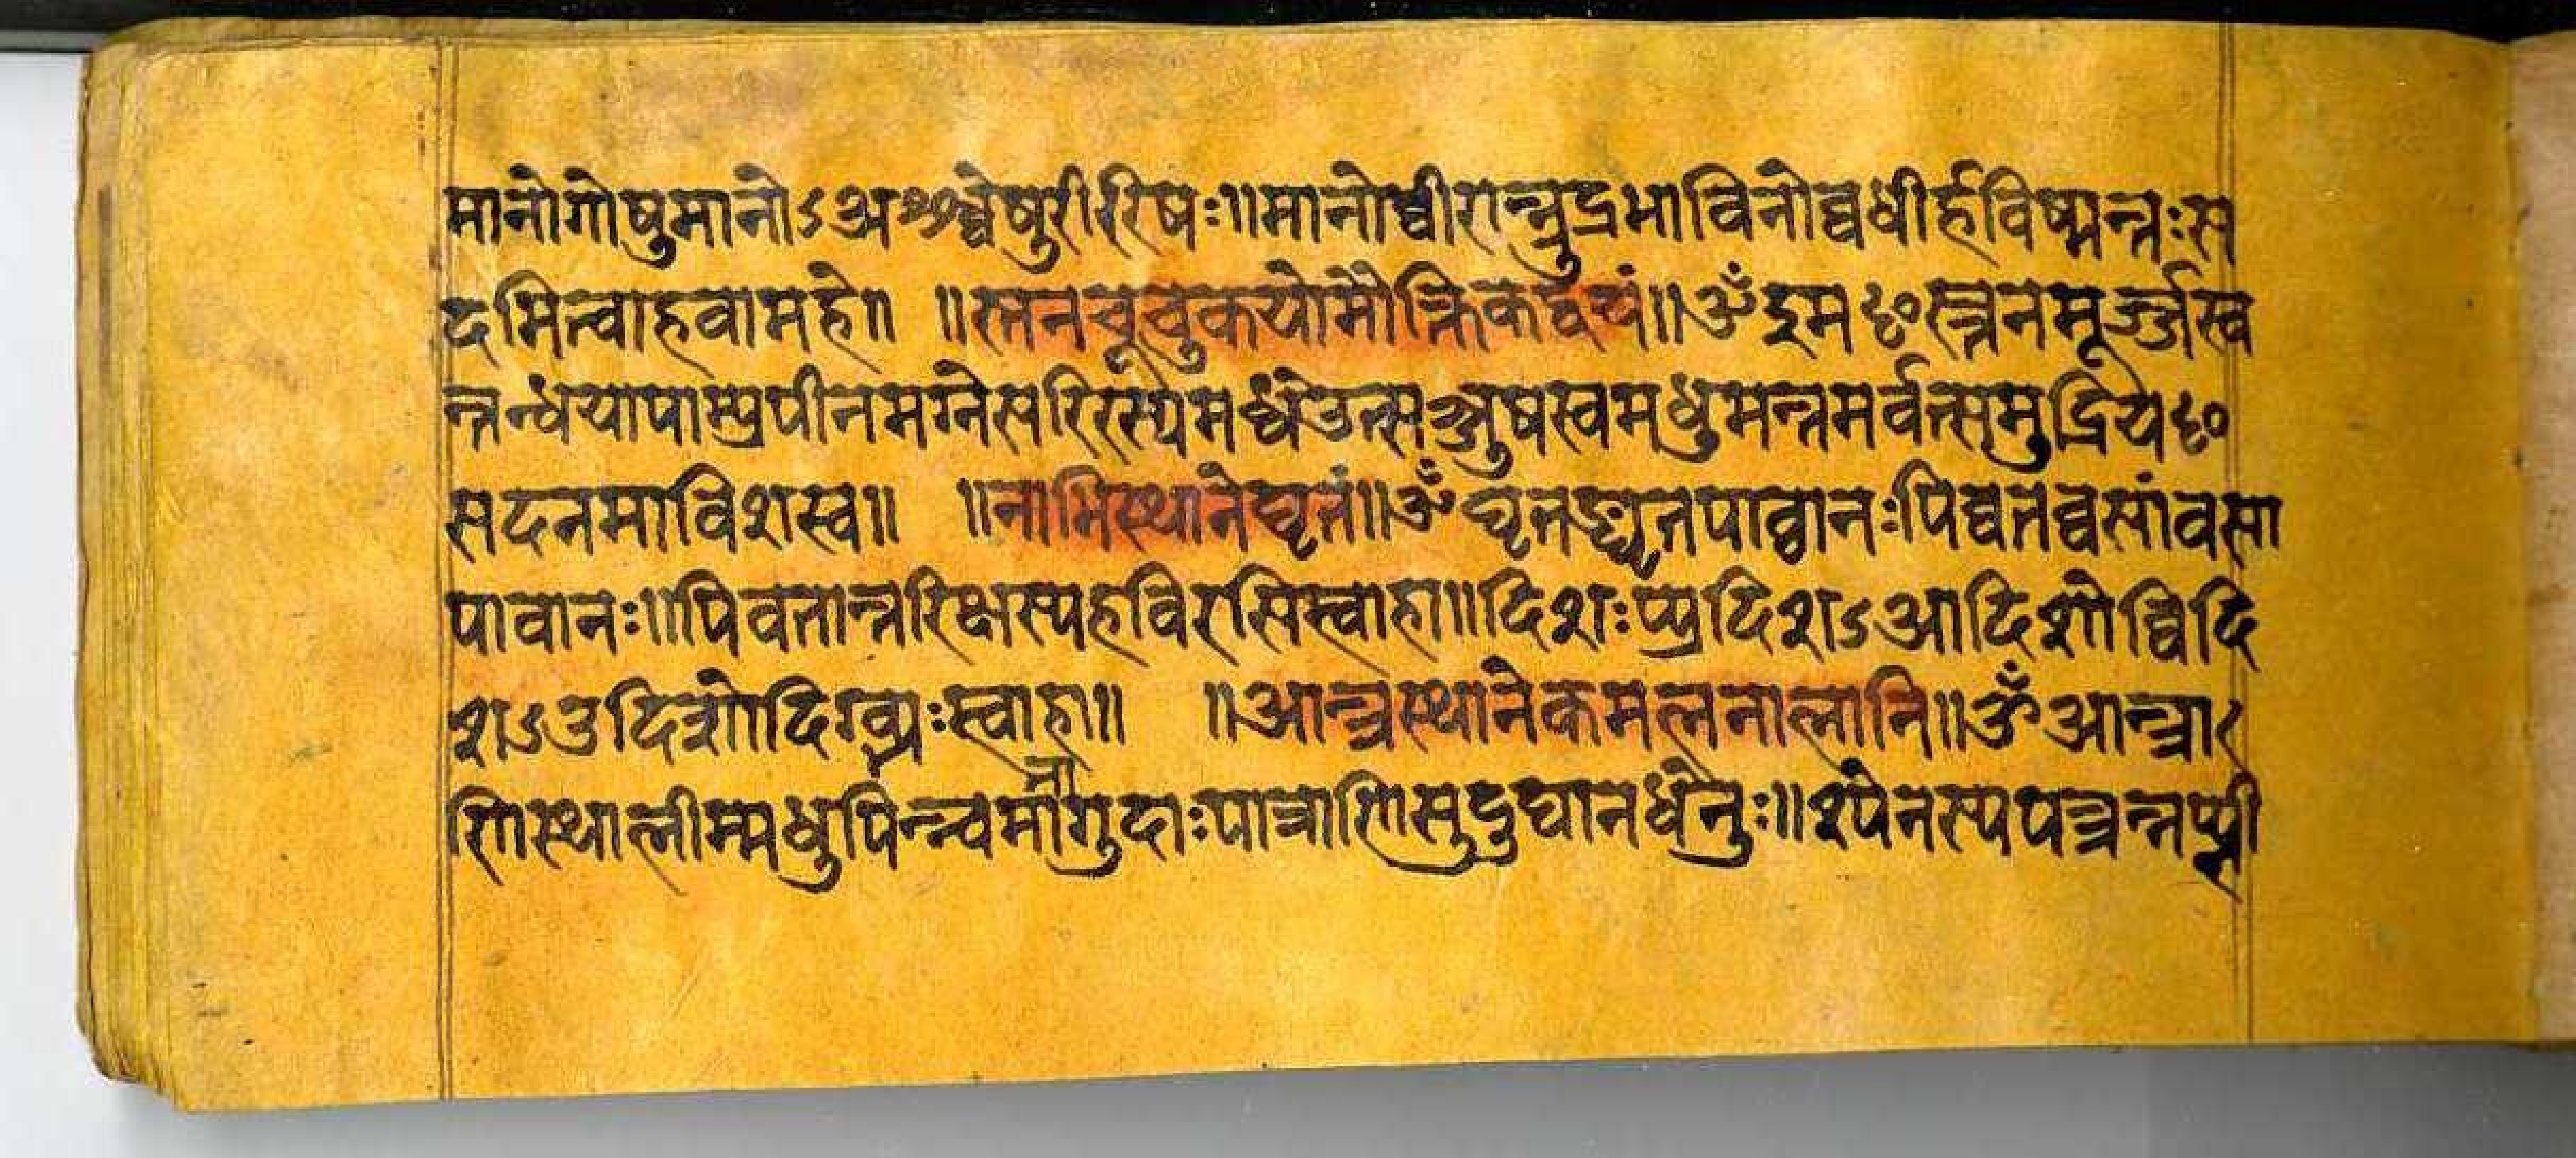 मानोगोषुमानोऽअश्श्वेषुरीरिषः॥मानोव्वीरान्न्रुद्रभाविनोव्वधीर्हविष्मन्तःस
दमित्त्वाहवामहे॥ ॥स्तनचूचुकयोमौक्तिकद्वयं॥ॐइमᳪस्तनमूर्ज्जस्व
न्तन्धंयापाम्प्रपीनमग्नेसरिरस्यमध्ये उत्सञ्जुषस्वमधुमन्तमर्वन्त्समुद्रियᳪ
सदनमाविशस्व॥ ॥नाभिस्थानेघृतं॥ॐघृतङ्घृतपावानःपिवतव्वसांवसा
पावानः॥पिवतान्तरिक्षस्यहविरसिस्वाहा॥दिशःप्प्रदिशऽआदिशोव्विदि
शऽउदिशोदिग्भ्यःस्वाहा॥ ॥आन्त्रस्थानेकमलनालानि॥ॐआन्त्रा
णिस्थालीम्मधुपिन्न्वमानागुदाःपात्राणिसुदुघानधेनुः॥श्येनस्यपत्रन्नप्प्ली